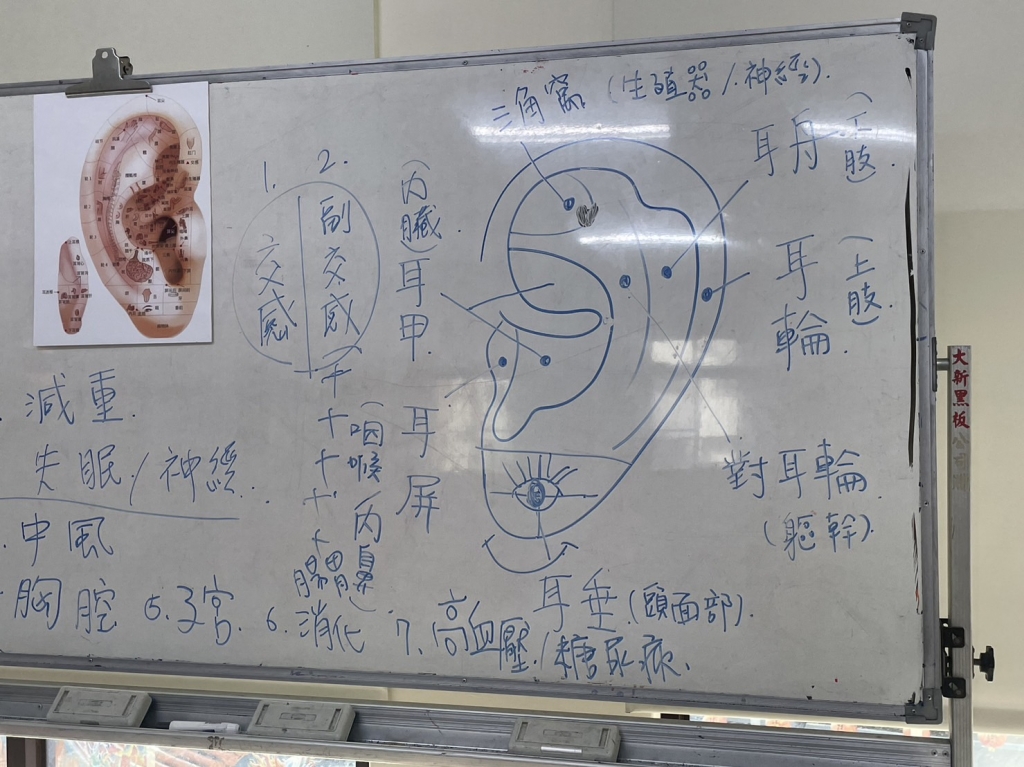 三角窩 (生殖器/神經).
耳舟 (肢).
耳輪 (上肢).
對耳輪
(軀幹).
耳垂 (頭面部).
(內臟) 耳甲.
耳屏
(咽喉 內鼻)
1. 交感
2. 副交感
腸胃
減重.
失眠/神經.
中風
胸腔
5.子宮.
6.消化
7.高血壓/糖尿病.
大新黑板